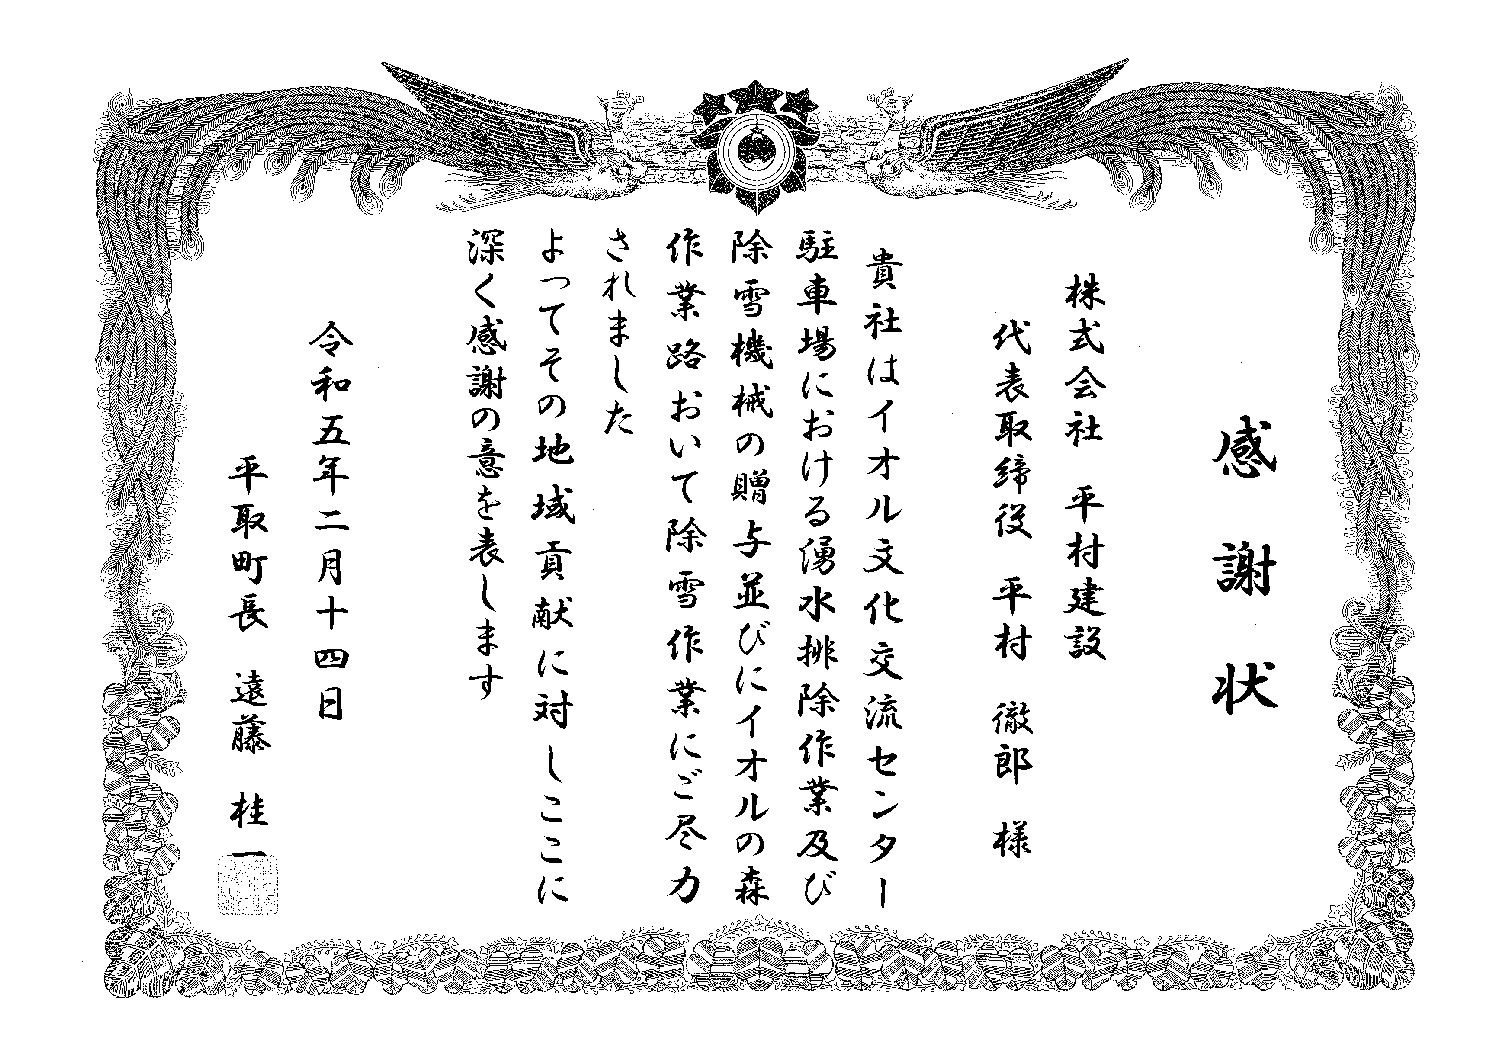 感謝状
株式会社　平村建設
代表取締役　平村　徹郎　様
貴社はイオル文化交流センター
駐車場における湧水排除作業及び
除雪機械の贈与並びにイオルの森
作業路おいて除雪作業にご尽力
されました
よってその地域貢献に対しここに
深く感謝の意を表します
令和五年二月十四日
平取町長　遠藤　桂一